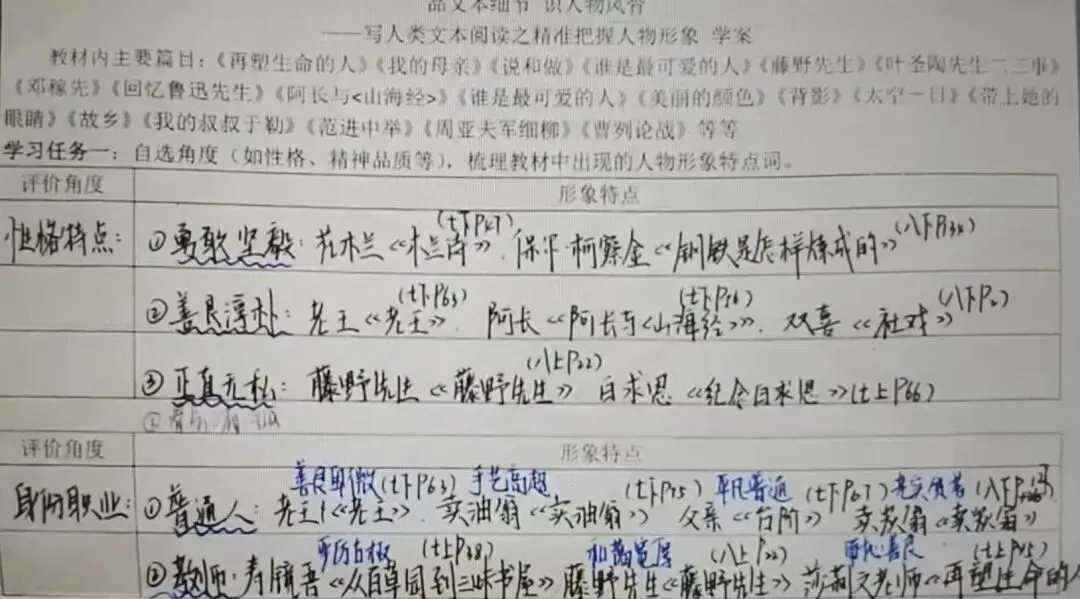 品文本细节 识人物风骨
——写人类文本阅读之精准把握人物形象 学案
教材内主要篇目：《再塑生命的人》《我的母亲》《说和做》《谁是最可爱的人》《藤野先生》《叶圣陶先生二三事》
《邓稼先》《回忆鲁迅先生》《阿长与<山海经>》《谁是最可爱的人》《美丽的颜色》《背影》《太空一日》《带上她的
眼睛》《故乡》《我的叔叔于勒》《范进中举》《周亚夫军细柳》《曹刿论战》等等
学习任务一：自选角度（如性格、精神品质等），梳理教材中出现的人物形象特点词。
评价角度 形象特点
(七下P47) (八下P38)
性格特点： ①勇敢坚毅：花木兰《木兰诗》 保尔·柯察金《钢铁是怎样炼成的》
(七下P63) (七下P56) (八下P2)
②善良淳朴：老王《老王》. 阿长《阿长与《山海经》》. 双喜《社戏》
(八上P22)
③正直无私：藤野先生《藤野先生》 白求恩《纪念白求恩》(七上P66)
评价角度 形象特点
善良卑微(七下P63) 手艺高超 (七下P75) 平凡普通 (七下P67)
身份职业： ①普通人：老王《老王》. 卖油翁《卖油翁》 父亲《台阶》 卖炭翁《卖炭翁》
严厉古板 (七上P38) 和蔼宽厚 (八上P22) (七上P45)
②教师：寿镜吾《从百草园到三味书屋》 藤野先生《藤野先生》 莎莉文老师《再塑生命的人